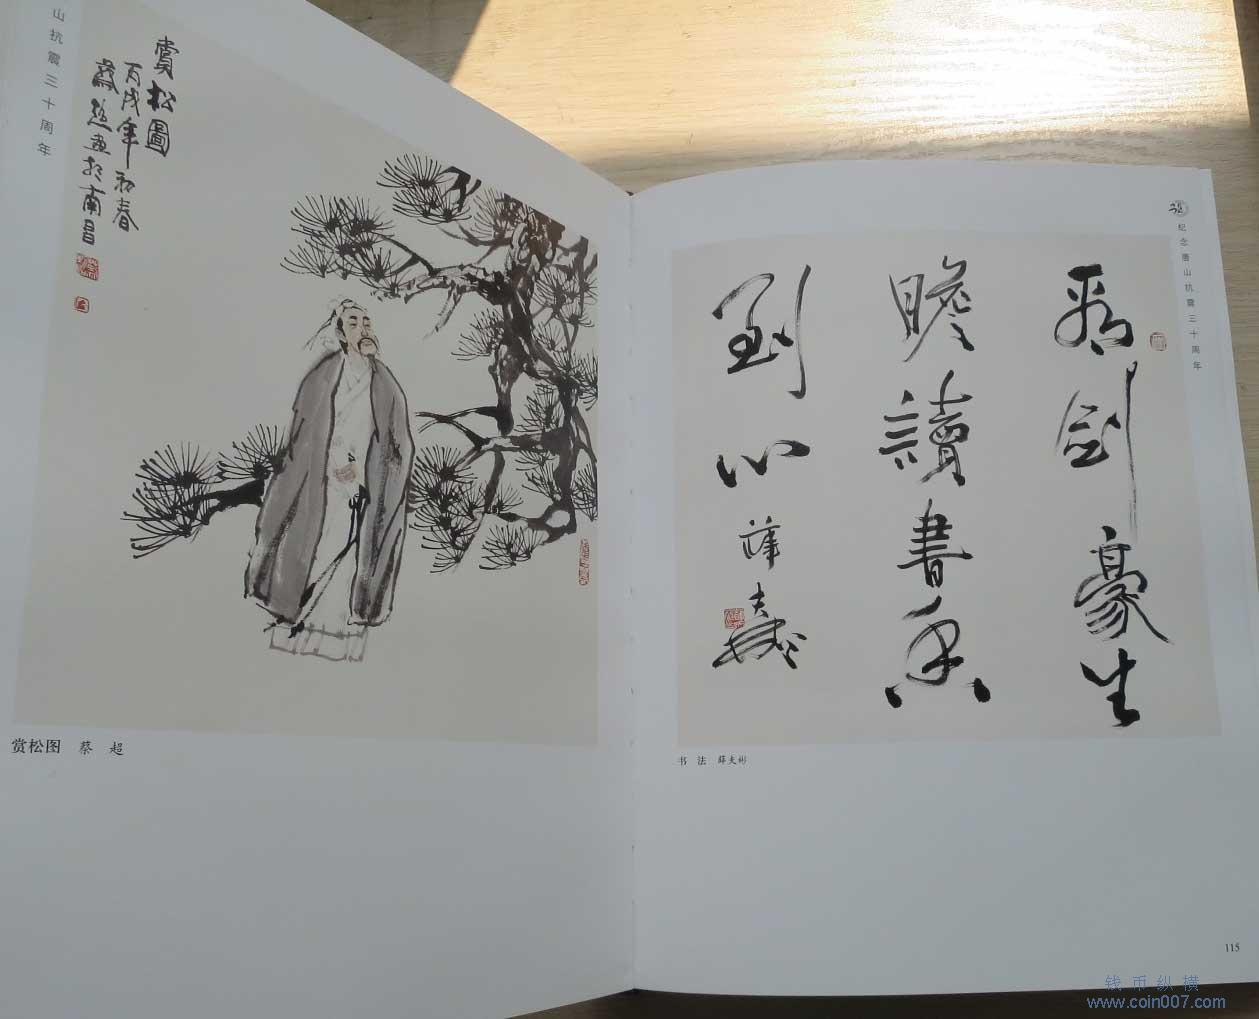 山抗震三十周年
賞松圖
丙戌年初春
蔡超畫於南昌
赏松图 蔡 超
纪念唐山抗震三十周年
看劍豪生
膽讀書香
到心 薛夫彬
书 法 薛夫彬
115
钱币纵横
www.coin007.com